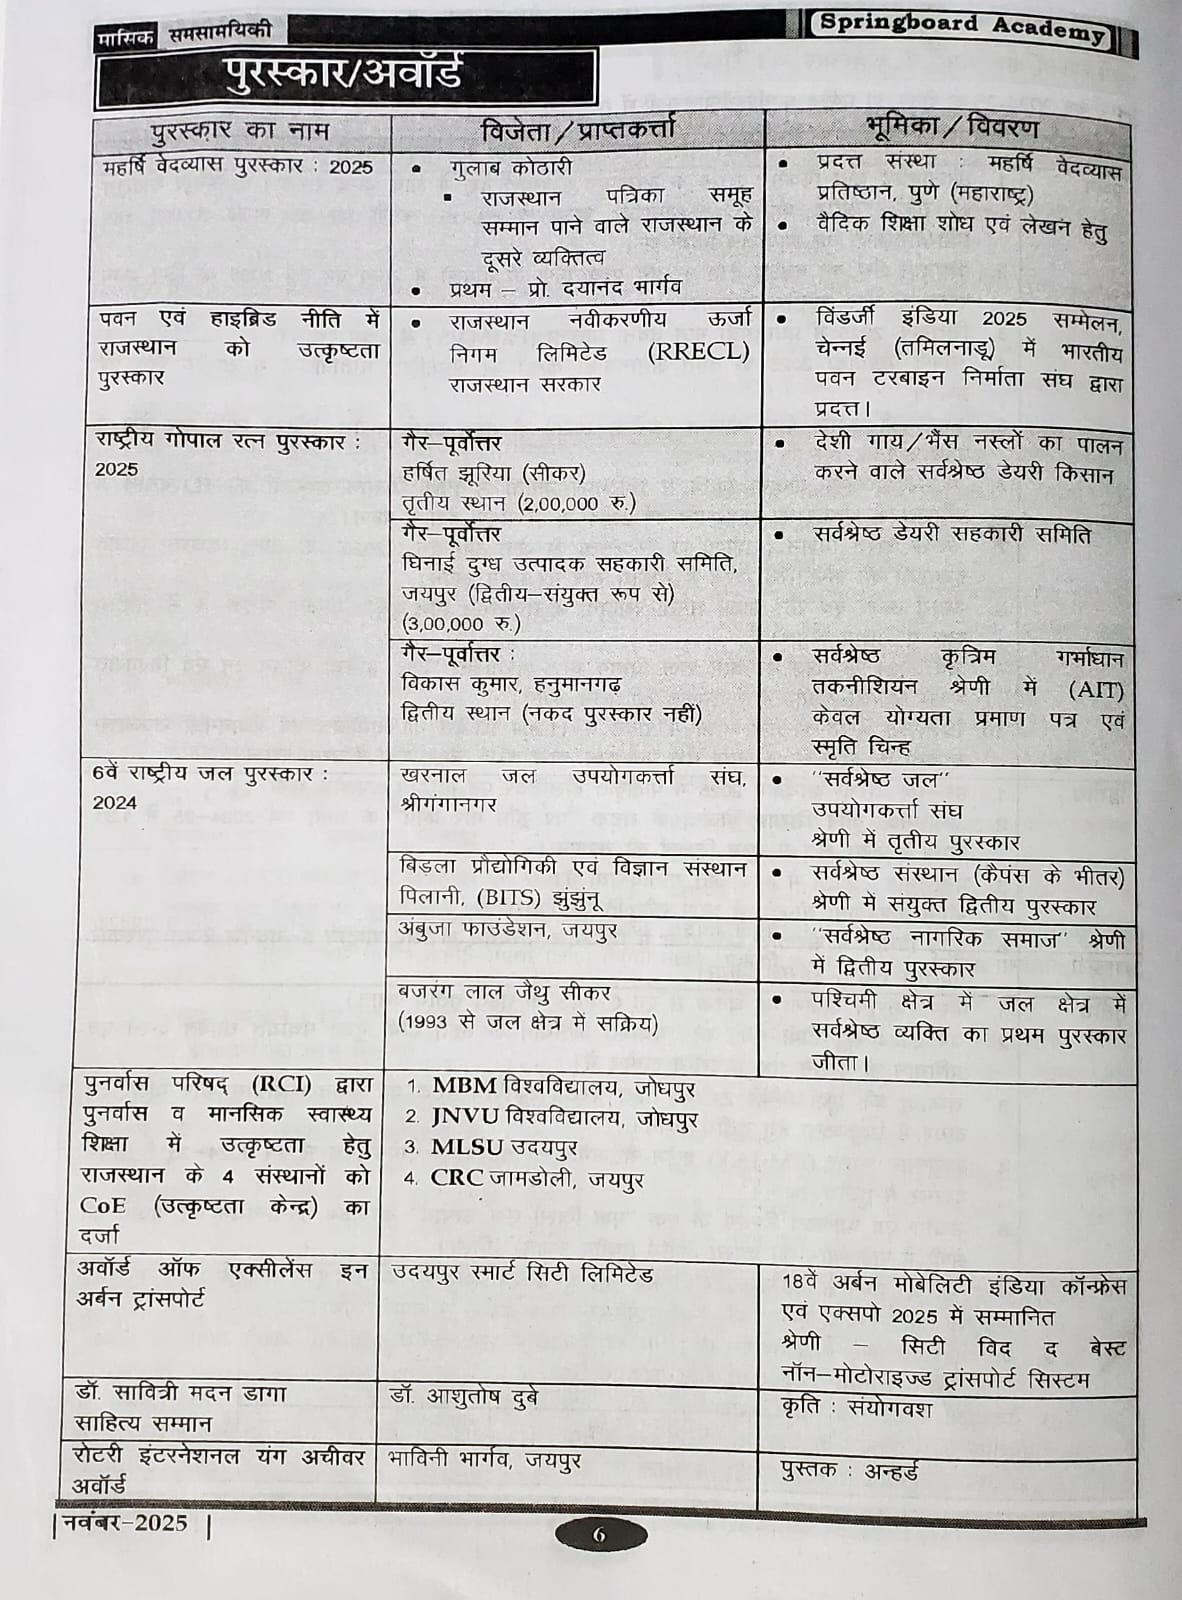 मासिक समसामयिकी
Springboard Academy
पुरस्कार/अवॉर्ड
पुरस्कार का नाम
विजेता/प्राप्तकर्त्ता
भूमिका/विवरण
महर्षि वेदव्यास पुरस्कार : 2025
• गुलाब कोठारी
▪ राजस्थान पत्रिका समूह
सम्मान पाने वाले राजस्थान के
दूसरे व्यक्तित्व
• प्रथम – प्रो. दयानंद भार्गव
• प्रदत्त संस्था : महर्षि वेदव्यास
प्रतिष्ठान, पुणे (महाराष्ट्र)
• वैदिक शिक्षा शोध एवं लेखन हेतु
पवन एवं हाइब्रिड नीति में
राजस्थान को उत्कृष्टता
पुरस्कार
• राजस्थान नवीकरणीय ऊर्जा
निगम लिमिटेड (RRECL)
राजस्थान सरकार
• विंडर्जी इंडिया 2025 सम्मेलन,
चेन्नई (तमिलनाडू) में भारतीय
पवन टरबाइन निर्माता संघ द्वारा
प्रदत्त।
राष्ट्रीय गोपाल रत्न पुरस्कार :
2025
गैर–पूर्वोत्तर
हर्षित झूरिया (सीकर)
तृतीय स्थान (2,00,000 रु.)
• देशी गाय/भैंस नस्लों का पालन
करने वाले सर्वश्रेष्ठ डेयरी किसान
गैर–पूर्वोत्तर
घिनाई दुग्ध उत्पादक सहकारी समिति,
जयपुर (द्वितीय–संयुक्त रूप से)
(3,00,000 रु.)
• सर्वश्रेष्ठ डेयरी सहकारी समिति
गैर–पूर्वोत्तर :
विकास कुमार, हनुमानगढ़
द्वितीय स्थान (नकद पुरस्कार नहीं)
• सर्वश्रेष्ठ कृत्रिम गर्माधान
तकनीशियन श्रेणी में (AIT)
केवल योग्यता प्रमाण पत्र एवं
स्मृति चिन्ह
6वें राष्ट्रीय जल पुरस्कार :
2024
खरनाल जल उपयोगकर्त्ता संघ,
श्रीगंगानगर
• "सर्वश्रेष्ठ जल"
उपयोगकर्त्ता संघ
श्रेणी में तृतीय पुरस्कार
बिड़ला प्रौद्योगिकी एवं विज्ञान संस्थान
पिलानी, (BITS) झुंझुंनू
• सर्वश्रेष्ठ संस्थान (कैपंस के भीतर)
श्रेणी में संयुक्त द्वितीय पुरस्कार
अंबुजा फाउंडेशन, जयपुर
• "सर्वश्रेष्ठ नागरिक समाज" श्रेणी
में द्वितीय पुरस्कार
बजरंग लाल जैथु सीकर
(1993 से जल क्षेत्र में सक्रिय)
• पश्चिमी क्षेत्र में जल क्षेत्र में
सर्वश्रेष्ठ व्यक्ति का प्रथम पुरस्कार
जीता।
पुनर्वास परिषद् (RCI) द्वारा
पुनर्वास व मानसिक स्वास्थ्य
शिक्षा में उत्कृष्टता हेतु
राजस्थान के 4 संस्थानों को
CoE (उत्कृष्टता केन्द्र) का
दर्जा
1. MBM विश्वविद्यालय, जोधपुर
2. JNVU विश्वविद्यालय, जोधपुर
3. MLSU उदयपुर
4. CRC जामडोली, जयपुर
अवॉर्ड ऑफ एक्सीलेंस इन
अर्बन ट्रांसपोर्ट
उदयपुर स्मार्ट सिटी लिमिटेड
18वें अर्बन मोबेलिटी इंडिया कॉन्फ्रेस
एवं एक्सपो 2025 में सम्मानित
श्रेणी – सिटी विद द बेस्ट
नॉन–मोटोराइज्ड ट्रांसपोर्ट सिस्टम
डॉ. सावित्री मदन डागा
साहित्य सम्मान
डॉ. आशुतोष दुबे
कृति : संयोगवश
रोटरी इंटरनेशनल यंग अचीवर
अवॉर्ड
भाविनी भार्गव, जयपुर
पुस्तक : अन्हर्ड
|नवंबर–2025 |
6